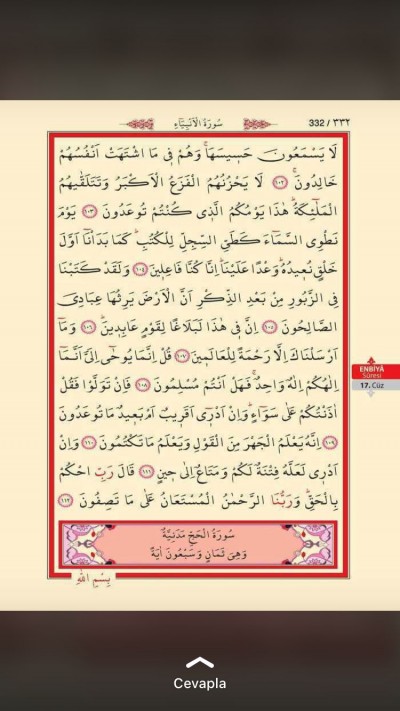 سُورَةُ الْاَنْبِيَٓاءِ
332 / ٣٣٢
لَا يَسْمَعُونَ حَس۪يسَهَاۚ وَهُمْ ف۪ي مَا اشْتَهَتْ اَنْفُسُهُمْ
خَالِدُونَۚ ﴿١٠٢﴾ لَا يَحْزُنُهُمُ الْفَزَعُ الْاَكْبَرُ وَتَتَلَقّٰيهُمُ
الْمَلٰٓئِكَةُۜ هٰذَا يَوْمُكُمُ الَّذ۪ي كُنْتُمْ تُوعَدُونَ ﴿١٠٣﴾ يَوْمَ
نَطْوِي السَّمَٓاءَ كَطَيِّ السِّجِلِّ لِلْكُتُبِۜ كَمَا بَدَأْنَٓا اَوَّلَ
خَلْقٍ نُع۪يدُهُۜ وَعْدًا عَلَيْنَاۜ اِنَّا كُنَّا فَاعِل۪ينَ ﴿١٠٤﴾ وَلَقَدْ كَتَبْنَا
فِي الزَّبُورِ مِنْ بَعْدِ الذِّكْرِ اَنَّ الْاَرْضَ يَرِثُهَا عِبَادِيَ
الصَّالِحُونَ ﴿١٠٥﴾ اِنَّ ف۪ي هٰذَا لَبَلَاغًا لِقَوْمٍ عَابِد۪ينَۜ ﴿١٠٦﴾ وَمَٓا
اَرْسَلْنَاكَ اِلَّا رَحْمَةً لِلْعَالَم۪ينَ ﴿١٠٧﴾ قُلْ اِنَّمَا يُوحٰٓى اِلَيَّ اَنَّمَٓا
اِلٰهُكُمْ اِلٰهٌ وَاحِدٌۚ فَهَلْ اَنْتُمْ مُسْلِمُونَ ﴿١٠٨﴾ فَاِنْ تَوَلَّوْا فَقُلْ
اٰذَنْتُكُمْ عَلٰى سَوَٓاءٍۜ وَاِنْ اَدْر۪ٓي اَقَر۪يبٌ اَمْ بَع۪يدٌ مَا تُوعَدُونَ
﴿١٠٩﴾ اِنَّهُ يَعْلَمُ الْجَهْرَ مِنَ الْقَوْلِ وَيَعْلَمُ مَا تَكْتُمُونَ ﴿١١٠﴾ وَاِنْ
اَدْر۪ي لَعَلَّهُ فِتْنَةٌ لَكُمْ وَمَتَاعٌ اِلٰى ح۪ينٍ ﴿١١١﴾ قَالَ رَبِّ احْكُمْ
بِالْحَقِّۜ وَرَبُّنَا الرَّحْمٰنُ الْمُسْتَعَانُ عَلٰى مَا تَصِفُونَ ﴿١١٢﴾
ENBİYÂ
Sûresi
17. Cüz
سُورَةُ الْحَجِّ مَدَنِيَّةٌ
وَهِيَ ثَمَانٍ وَسَبْعُونَ اٰيَةً
بِسْمِ اللّٰهِ
Cevapla